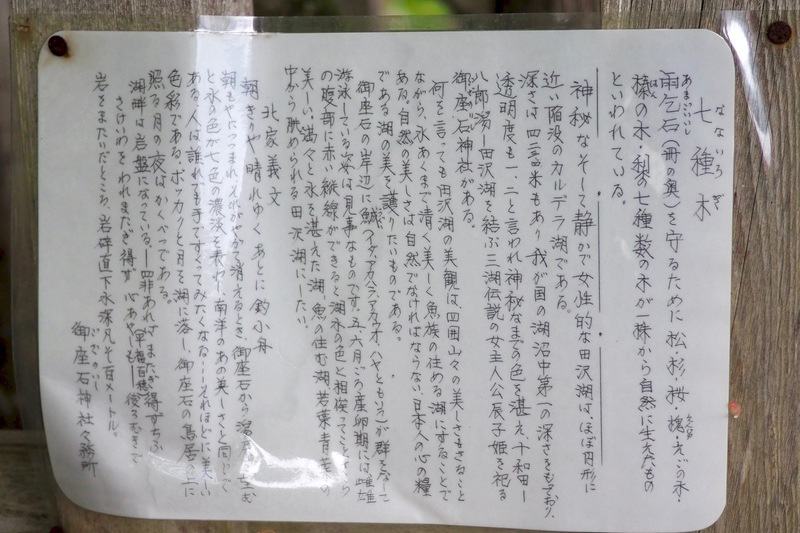 七種木
なないろぎ
雨乞石(冊の奥)を守るために 松・杉・桜・槐・えごの木・
あまごいいし
えんじゅ
榛の木・梨の七種数の木が一株から自然に生えたもの
はん
といわれている。
神秘なそして静かで女性的な田沢湖は、ほぼ円形に
近い陥没のカルデラ湖である。
深さは四二五米もあり 我が国の湖沼中第一の深さをもっており、
透明度も一、二と言われ神秘なまでの色を湛え、十和田ー
八郎潟ー田沢湖を結ぶ三湖伝説の女主人公辰子姫を祀る
御座石神社がある。
何を言っても田沢湖の美観は、四囲山々の美しさもさること
ながら、水あくまで清く美しく魚族の住める湖にすることで
ある。自然の美しさは自然でなければならない、日本人の心の糧
である湖の美を護りたいものである。
御座石の岸辺に鯎(イダ、アカハラ、アカウオ、ハヤともいう)が群をなして
游泳している姿は見事なものです。五、六月ごろ産卵期には雌雄
の腹部に赤い縦線ができると湖水の色と相俟って
美しい。満々と水を湛えた湖、魚の住む湖、若葉青葉の
中から眺められる田沢湖にしたい。
北家義文
朝ぎりや 晴れゆく あとに 釣小舟
朝もやにつつまれ、それがやがて消えるとき、御座石から
と水の色が七色の濃淡を表わし、南洋のあの美しさと同じく
ある人は誰れでも手ですくってみたくなる……それほどに美しい
色彩である。ポッカリと月を湖に落し、御座石の鳥居の上に
照る月の夜はかくべつである。
湖畔は岩盤になっている。
さけいわをわれまたぎ得ず 心あやしも 後ろむきて
岩をまたいだところ、岩碑直下水深凡そ百メートル。
ござのいし
御座石神社々務所